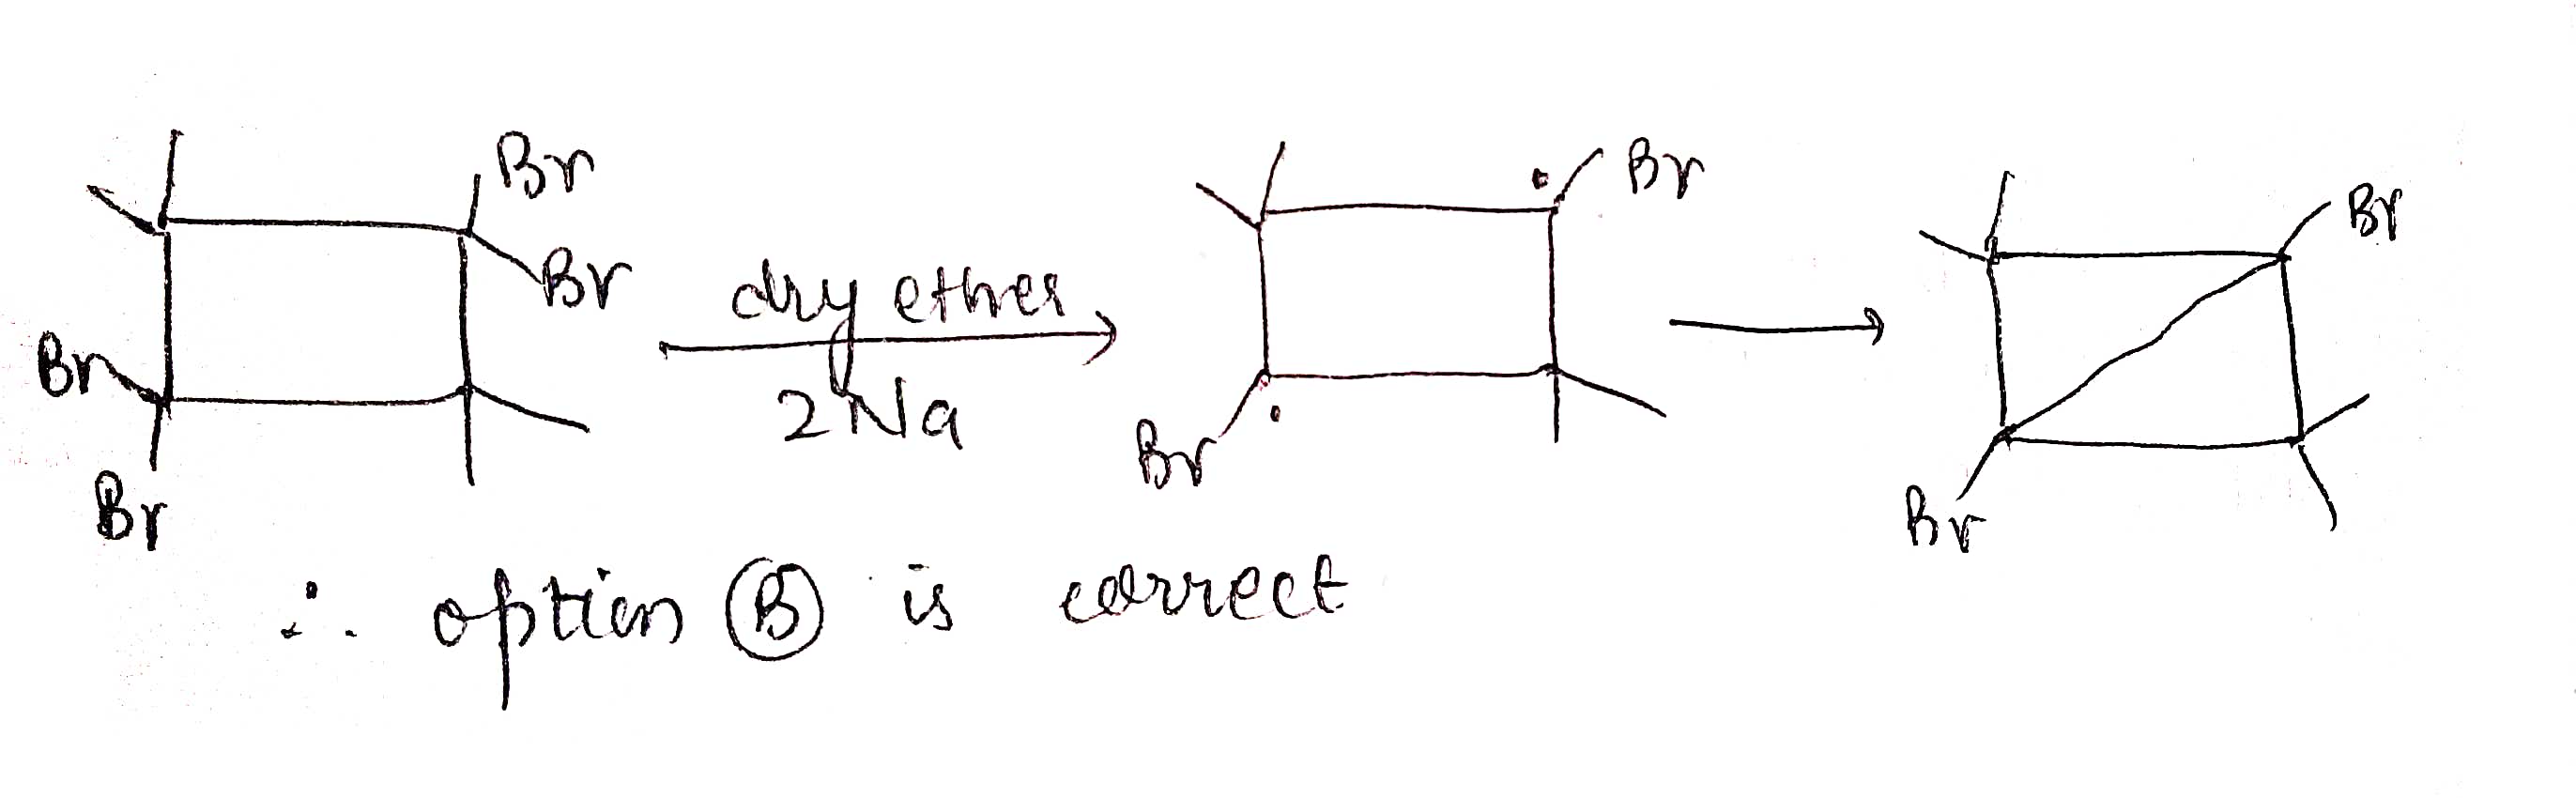 Br
Br
Br
Br
dry ether
2Na
Br
Br
Br
Br
∴ option Ⓑ is correct